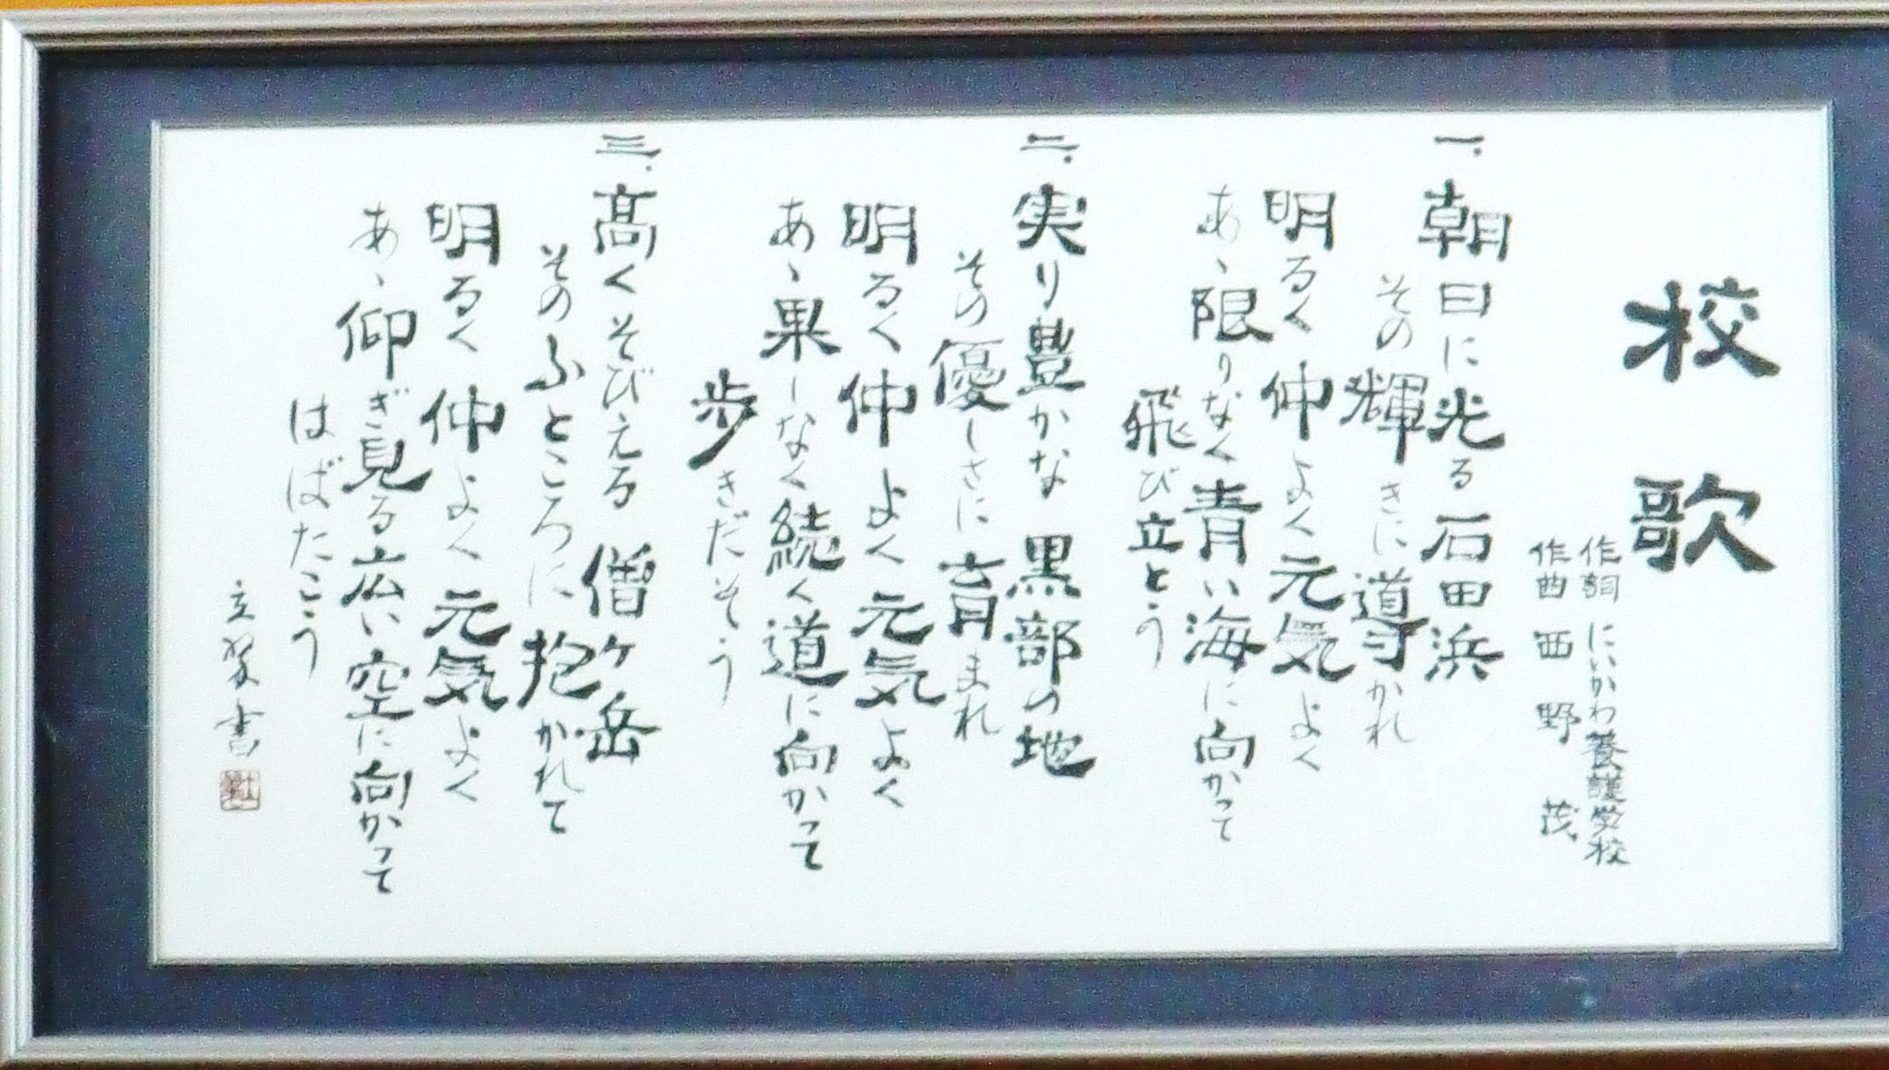 校歌
作詞 にいかわ養護学校
作曲 西野 茂
一.朝日に光る石田浜
その輝きに導かれ
明るく仲よく元気よく
あゝ限りなく青い海に向かって
飛び立とう
二.実り豊かな黒部の地
その優しさに育まれ
明るく仲よく元気よく
あゝ果しなく続く道に向かって
歩きだそう
三.高くそびえる僧ヶ岳
そのふところに抱かれて
明るく仲よく元気よく
あゝ仰ぎ見る広い空に向かって
はばたこう
書